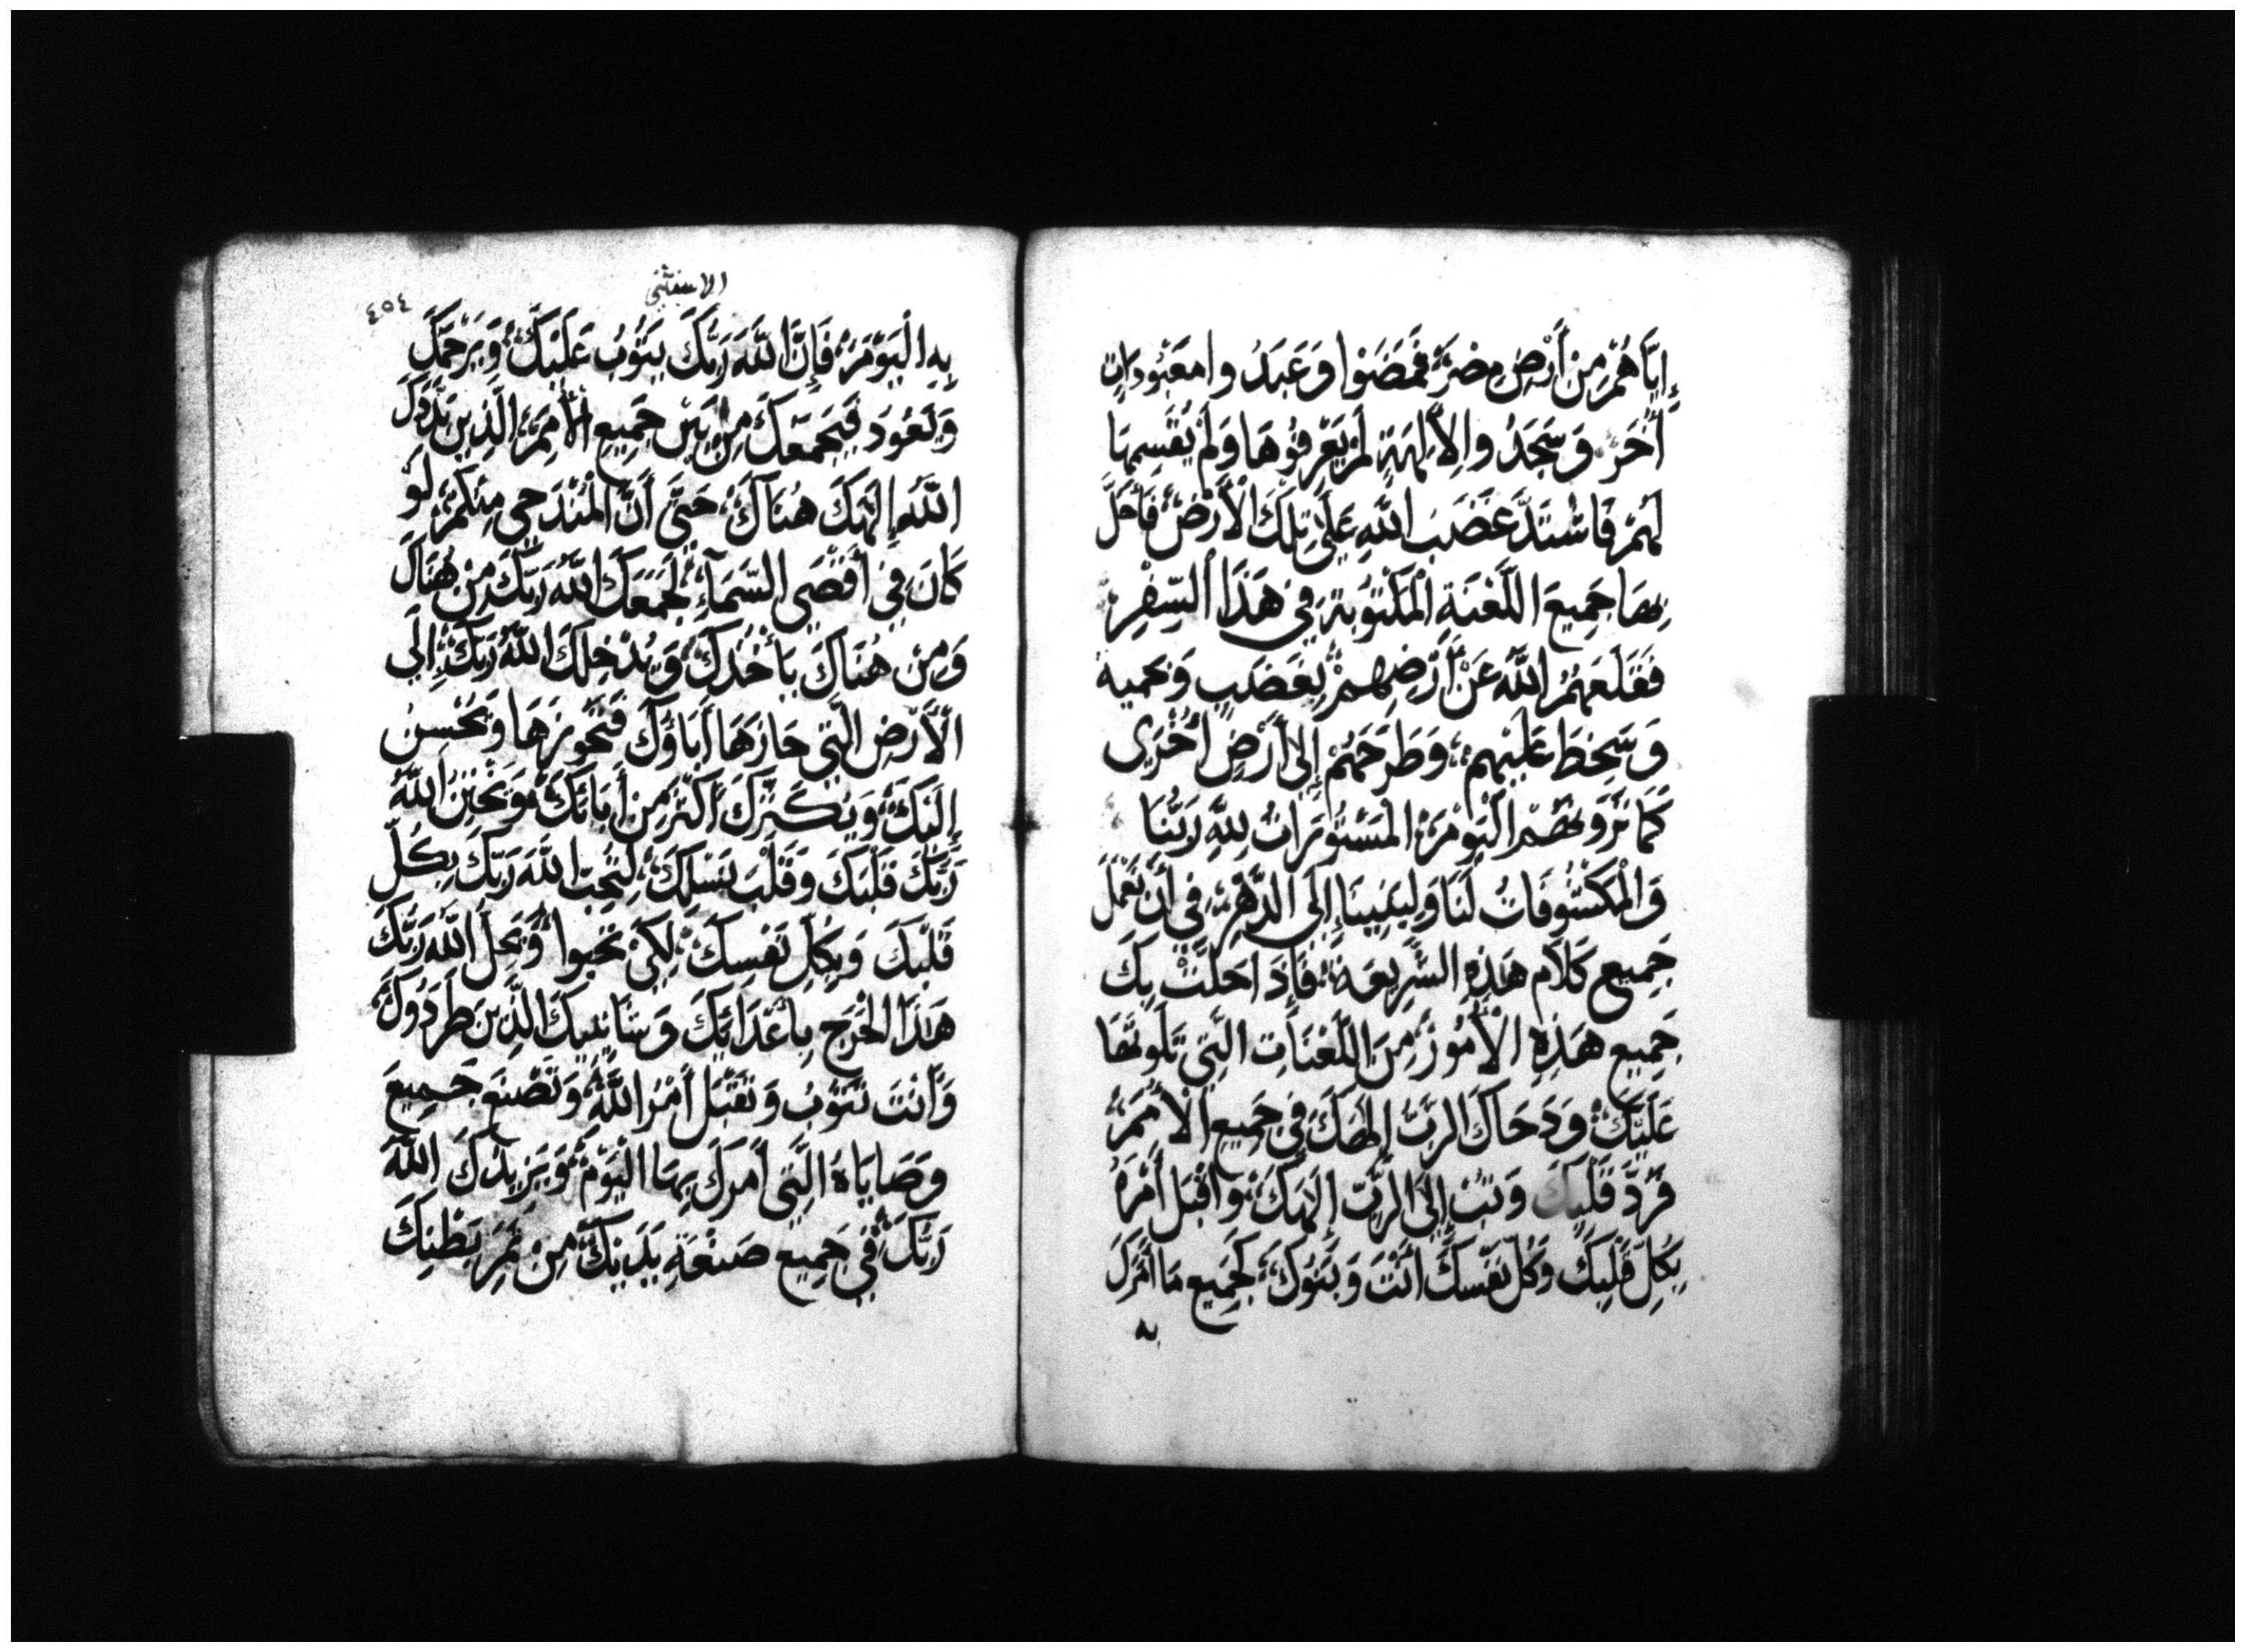 إِيَّاهُمْ مِنْ أَرْضِ مِصْرَ فَمَضَوْا وَعَبَدُ وا مَعْبُودَات
أُخَرَ وَسَجَدُ والِأَلِهَةٍ لَمْ يَعْرِفُوْهَا وَلَمْ يُقَسِمهَا
لَهُمْ فَاشْتَدَّ غَضَبَ اللَّهِ عَلَى تِلْكَ الْأَرْضِ فَأَحَلَّ
بِهَا جَمِيعَ اللَّعْنَةِ الْمَكْتُوبَةِ فِي هَذَا السِّفْرِ
فَقَلَعَهُمُ اللَّهُ عَنْ أَرْضِهِمْ بِغَضَبٍ وَحمية
وَسَخِطَ عَلَيْهِم وَطَرَحَهُمْ إِلَى أَرْضٍ أُخْرَى
كَمَا تَرَوْنَهُم الْيَوْمَ الْمَسْتُورَاتُ لِلَّهِ رَبُّنَا
وَالْمَكْشُوفَاتُ لَنَا وَلِبَنِينَا إِلَى الدَّهْرِ فِي أَنْ نَعْمَلَ
جَمِيع كَلَامِ هَذِهِ الشَّرِيعَة فَإِذَا حَلَّتْ بِكَ
جَمِيع هَذِهِ الْأُمُورَ مِنَ اللَّعْنَاتِ الَّتِي تَلَوتُهَا
عَلَيْكَ وَدَحَاكَ الرَّبُّ إِلَهَكَ فِي جَمِيعِ الْأُمَمَ
فَرُدَّ قَلْبَكَ وَتُبْ إِلَى الرَّبِّ إِلَهِكَ وَاقْبَل أَمْرَهُ
بِكُلِّ قَلْبِكَ وَكُلِّ نَفْسِكَ أَنْتَ وَبَنُوكَ لِجَمِيعِ مَا أَمَرَكَ
به
الاستثنى
٤٥٤
بِهِ الْيَوْمَ فَإِنَّ اللَّهَ رَبَّكَ يَتُوبُ عَلَيْكَ وَيَرْحَمَكَ
وَيَعُودَ فَيَجْمَعَكَ مِنْ بَيْنِ جَمِيعِ الْأُمَمِ الَّذِينَ بَدَّدَكَ
اللَّهُ إِلَهَكَ هُنَاكَ حَتَّى أَنَّ الْمُنْدَحِي مِنْكُمْ لَوْ
كَانَ فِي أَقْصَى السَّمَآءِ لَجَمَعَكَ اللَّهُ رَبُّكَ مِنْ هُنَاكَ
وَمِنْ هُنَاكَ يَأْخُذكَ وَيُدْخِلكَ اللَّهُ رَبُّكَ إِلَى
الْأَرْضِ الَّتِي حَازَهَا أَبَاؤُكَ فَتَحُوزهَا وَيُحْسِنُ
إِلَيْكَ وَيُكَثِّرَكَ أَكْثَرَ مِنْ أَبَائِكَ وَيَخْتِنُ اللَّهُ
رَبُّكَ قَلْبَكَ وَقَلْبَ نَسْلِكَ لِتُحِبَّ اللَّهَ رَبَّكَ بِكُلِّ
قَلْبِكَ وَبِكُلِّ نَفْسِكَ لِكَيْ تَحيوا وَيُحلّ اللَّهُ رَبُّكَ
هَذَا الْحَرَجِ بِأَعْدَائِكَ وَشَانئيكَ الَّذِينَ طَرَدُوكَ
وَأَنْتَ تَتُوبُ وَتَقْبَل أَمْرَ اللَّهِ وَتَصْنَع جَمِيعَ
وَصَايَاهُ الَّتِي أَمَرَكَ بِهَا الْيَوْمَ وَيَزِيدُكَ اللَّهُ
رَبُّكَ فِي جَمِيعِ صَنْعَةِ يَدَيْكَ مِنْ ثَمَرِ بَطْنِكَ